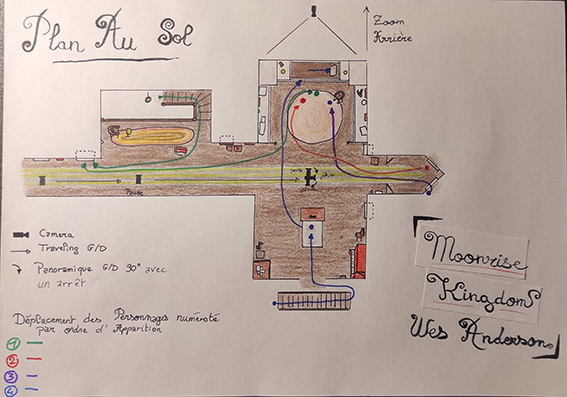 Plan Au Sol
Zoom
Arrière
Pause
Camera
Traveling G/D
Panoramique G/D 90° avec
un arrêt
Déplacement des Personnages numéroté
par ordre d'Apparition
1
2
3
4
Moonrise
Kingdom
Wes Anderson